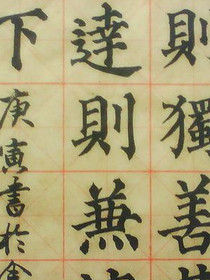 則獨善
達則兼
下
庚寅書於